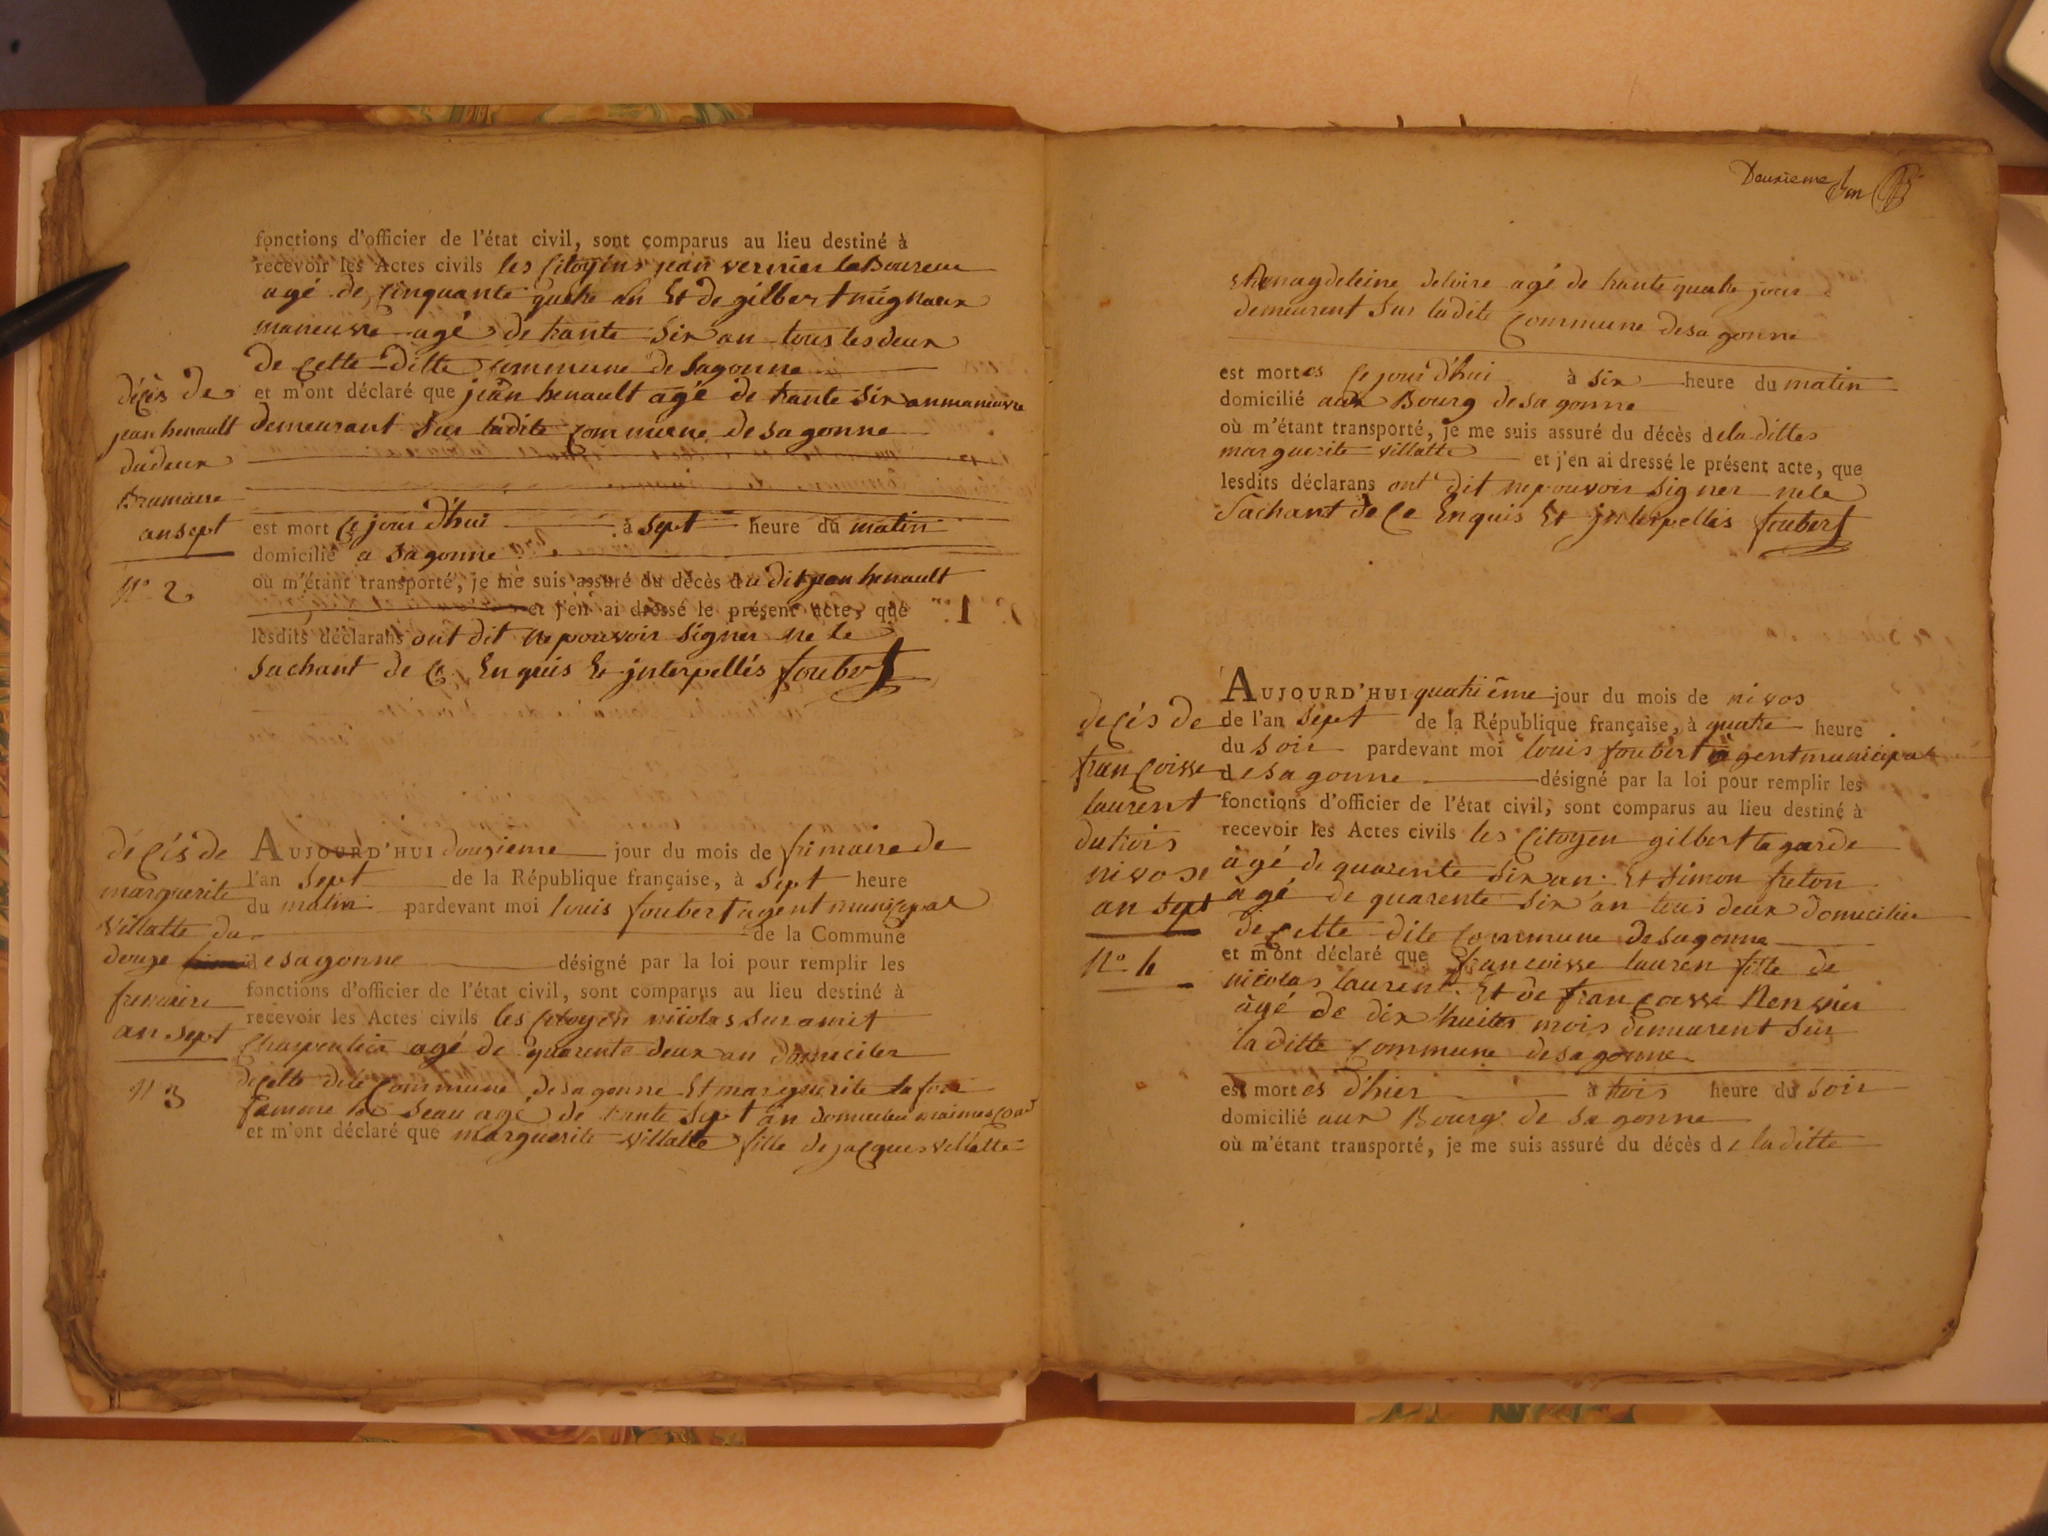 fonctions d'officier de l'état civil, sont comparus au lieu destiné à
recevoir les Actes civils les Citoyens jean vernier laBoureur
agé de Cinquante quatre an Et de gilbert mignaux
maneuvre agé de trante six an tous les deux
de Cette ditte Commune de sagonne
et m'ont déclaré que jean henault agé de trante six an maneuvre
demeurant sur ladite Commune de sagonne
est mort Ce jour d'hui à sept heure du matin
domicilié a sagonne
où m'étant transporté, je me suis assuré du décès du dit jean henault
et j'en ai dressé le présent acte, que
lesdits déclarans ont dit ne pouvoir signer ne le
sachant de Ce Enquis Et jnterpellés foubert
décès de
jean henault
du deux
Brumaire
an sept
N° 2
AUJOURD'HUI douzieme jour du mois de frimaire de
l'an sept de la République française, à sept heure
du matin pardevant moi louis foubert agent municipal
de la Commune
desagonne désigné par la loi pour remplir les
fonctions d'officier de l'état civil, sont comparus au lieu destiné à
recevoir les Actes civils les Citoyen nicolas
Charpentier agé de quarente deux an domicilier
de Cette dite Commune de sagonne Et marguerite
femme agé de trante sept an
et m'ont déclaré que marguerite villatte fille de jacques villatte
décés de
marguerite
villatte du
douze
frimaire
an sept
N 3
Deuxieme
Et magdeleine deloire agé de trante quatre jours
demeurent sur ladite Commune desagonne
est mortes Ce jour d'hui à six heure du matin
domicilié aux Bourg desagonne
où m'étant transporté, je me suis assuré du décès deladittes
marguerite villatte et j'en ai dressé le présent acte, que
lesdits déclarans ont dit ne pouvoir signer nele
Sachant de Ce Enquis Et jnterpellés foubert
AUJOURD'HUI quatriéme jour du mois de nivos
de l'an sept de la République française, à quatre heure
du soir pardevant moi louis foubert agent municipal
desagonne désigné par la loi pour remplir les
fonctions d'officier de l'état civil, sont comparus au lieu destiné à
recevoir les Actes civils les Citoyen gilbert lagarde
àgé de quarente six an Et simon freton
agé de quarente six an tous deux domicilier
de Cette dite Commune de sagonne
et m'ont déclaré que francoisse lauren fille de
nicolas laurent Et de francoisse
àgé de dix huites mois demeurent sur
laditte Commune desagonne
est mortes d'hier à trois heure du soir
domicilié aux Bourg de sagonne
où m'étant transporté, je me suis assuré du décès de laditte
decés de
francoisse
laurent
du trois
nivose
an sept
N° 4